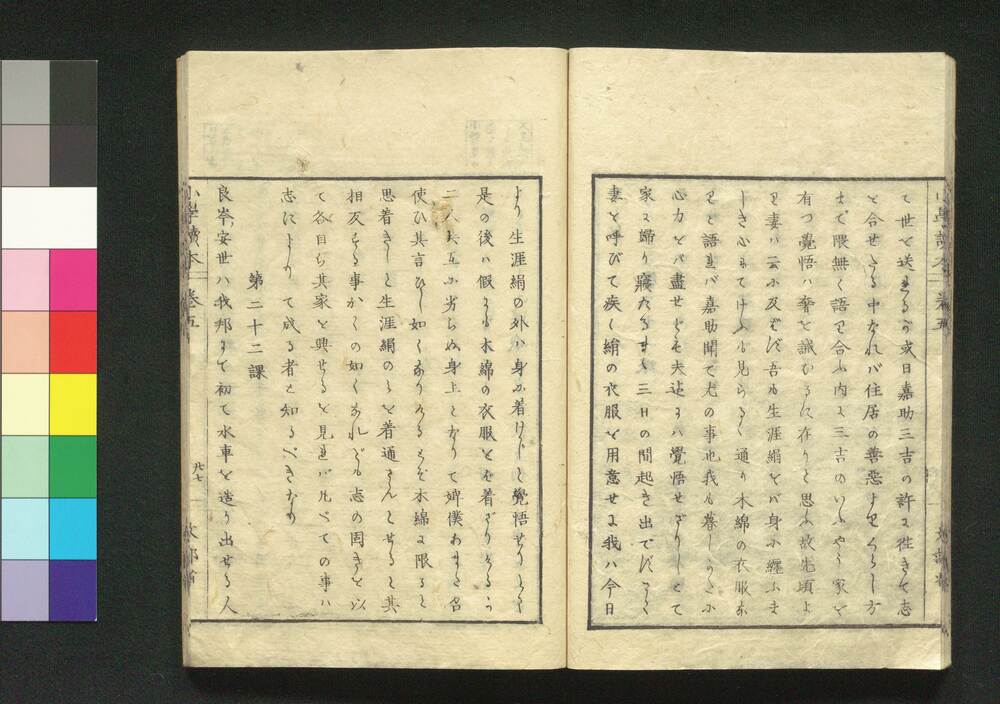 て世を送れるが或日嘉助三吉の許に往きて志
を合せたる中なれバ住居の善惡よりくらし方
まで隈無く語り合ふ内に三吉のいふやう家を
有つ覺悟ハ奢を誡むるに在りと思ふ故先頃よ
り妻ハ云ふ及ばず吾も生涯絹をバ身に纏ふま
じき心にてけふも見らるゝ通り木綿の衣服な
りと語れバ嘉助聞て尤の事也我も暮しのことに
心力をバ盡せども夫迄にハ覺悟せざりしとて
家に歸り寢たるまゝ三日の間起き出でずして
妻を呼びて疾く絹の衣服を用意せよ我ハ今日
より生涯絹の外ハ身に着けじと覺悟せりとて
是の後ハ假にも木綿の衣服を着ざりけるが
二人共互に劣らぬ身上となりて婢僕あまた召
使ひ其言ひし如くなりけるとぞ木綿に限ると
思着きしと生涯絹のみを着通さんとせると其
相反する事かくの如くなれども志の固きを以
て各自ら其家を興せるを見れバ凡べての事ハ
志によりて成る者と知るべきなり
第二十二課
良岑安世ハ我邦にて初て水車を造り出せる人
小學讀本 卷五
九七
文部省